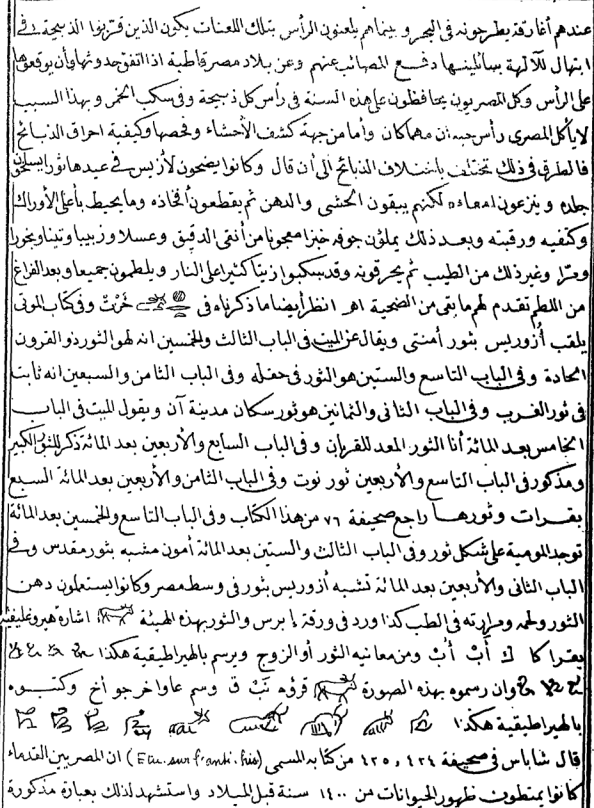 عندهم أغارقة يطرحونه فى البحر وبينماهم يلعنون الرأس بتلك اللعنات يكون الذين قربوا الذبيحة فى
ابتهال للآلهة يسائلينها دفع المصائب عنهم وعن بلاد مصر قاطبة اذا اتفق حدوثها وأن يوقعوها
على الرأس وكل المصريون يحافظون على هذه السنة فى رأس كل ذبيحة وفى سكب الخمر وبهذا السبب
لا يأكل المصرى رأس حيوان مهما كان وأما من جهة كشف الأحشاء وفحصها وكيفية احراق الذبائح
فالطرق فى ذلك تختلف باختلاف الذبائح الى أن قال وكانوا يضحون لأزيس فى عيدها ثورا يسلخون
جلده وينزعون امعاءه لكنهم يبقون الحشى والدهن ثم يقطعون أفخاذه وما يحيط بأعلى الأوراك
وكتفيه ورقبته وبعد ذلك يملؤن جوفه خبزا معجونا من أنقى الدقيق وعسلا وزبيبا وتينا وبخورا
ومرّا وغير ذلك من الطيب ثم يحرقونه وقد سكبوا زيتا كثيرا على النار ويلطمون جميعا وبعد الفراغ
من اللطم تقدم لهم ما بقى من الضحية اهـ انظر أيضا ما ذكرناه فى خَرْتْ وفى كتاب الموتى
يلقب أُزوريس بثور أمنتى ويقال عن الميت فى الباب الثالث والخمسين انه لهو الثور ذو القرون
الحادة وفى الباب التاسع والستين هو الثور فى حقله وفى الباب الثامن والسبعين انه ثابت
فى ثور الغرب وفى الباب الثانى والثمانين هو ثور سكان مدينة آن ويقول الميت فى الباب
الخامس بعد المائة أنا الثور المعد للقربان وفى الباب السابع والأربعين بعد المائة ذكر للثور الكبير
ومذكور فى الباب التاسع والأربعين ثور نوت وفى الباب الثامن والأربعين بعد المائة السبع
بقرات وثورها راجع صحيفة ٧٦ من هذا الكتاب وفى الباب التاسع والخمسين بعد المائة
توجد المومية على شكل ثور وفى الباب الثالث والستين بعد المائة أمون مشبه بثور مقدس وفى
الباب الثانى والأربعين بعد المائة تشبه أزوريس بثور فى وسط مصر وكانوا يستعملون دهن
الثور ولحمه ومرارته فى الطب كذا ورد فى ورقة إبرس والثور بهذه الهيئة اشارة هيروغليفية
يقرا كا ك أَبْ أُبْ ومن معانيه الثور أو الزوج ويرسم بالهيراطيقية هكذا
وان رسموه بهذه الصورة قرؤه نَبْ ق وسم عاوا خرجو أخ وكتبوه
بالهيراطيقية هكذا
قال شاباس فى صحيفة ٤٢٤ و ٤٢٥ من كتابه المسمى (Etu. sur l'anti. his) ان المصريين القدماء
كانوا يمتطون ظهور الحيوانات من ١٤٠٠ سنة قبل الميلاد واستشهد لذلك بعبارة مذكورة